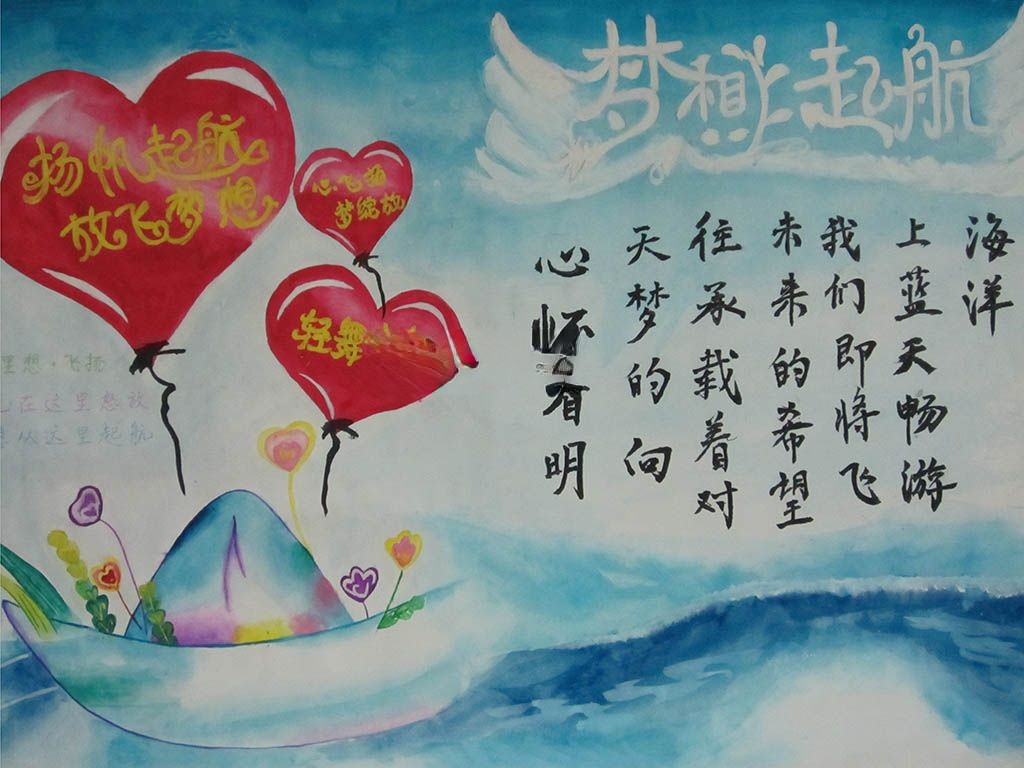 梦想起航
扬帆起航
放飞梦想
心·飞扬
梦绽放
轻舞
心怀明
天梦的向
往承载着对
未来的希望
我们即将飞
上蓝天畅游
海洋
里想·飞扬
在这里放
从这里起航